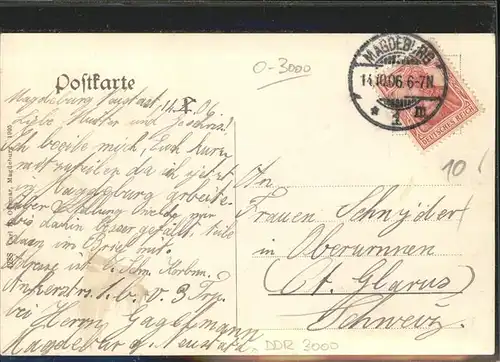 Postkarte
MAGDEBURG
14.10.06. 6-7N.
* 1 m
DEUTSCHES REICH
O-3000
10
Magdeburg Neustadt, 14. X. 06.
Liebe Mutter und
Ich beeile mich, Euch kurz
mitzuteilen da ich jetzt
in Magdeburg arbeite.
Über Stellung melde
bis dahin
dann im Brief mit.
Adresse ist E. Schn. Korbm.
Ankerstr. 1. b. v. 3 Trp.
bei Herrn Gagelmann
Magdeburg a. Neustadt.
An
Frauen Schnyder
in Oberurnen
Ct. Glarus
Schweiz.
DDR 3000
Magdeburg 1905